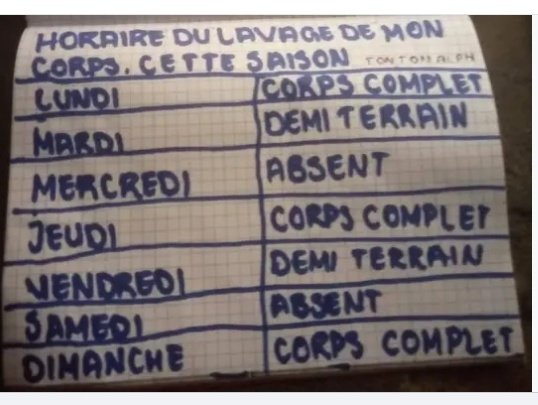 HORAIRE DU LAVAGE DE MON
CORPS. CETTE SAISON TONTON ALPH
LUNDI CORPS COMPLET
MARDI DEMI TERRAIN
MERCREDI ABSENT
JEUDI CORPS COMPLET
VENDREDI DEMI TERRAIN
SAMEDI ABSENT
DIMANCHE CORPS COMPLET